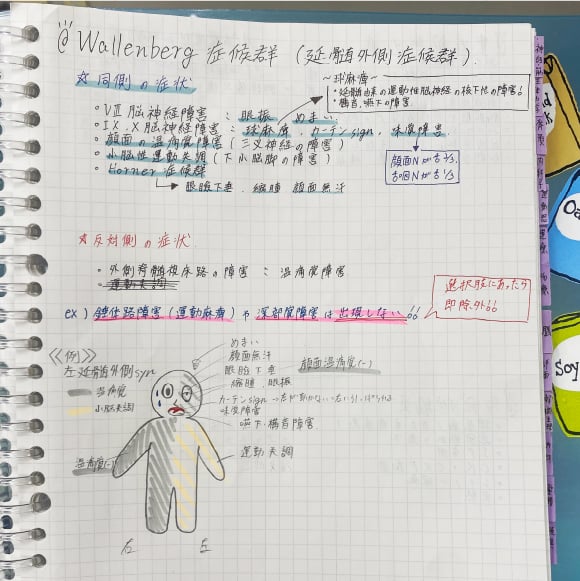 @ Wallenberg 症候群 (延髄外側症候群).
☆ 同側の症状
〜球麻痺〜
・延髄由来の運動性脳神経の核下性の障害!
・構音、嚥下の障害
・Ⅷ脳神経障害 : 眼振、めまい.
・Ⅸ.Ⅹ脳神経障害 : 球麻痺、カーテンsign、味覚障害.
・顔面の温痛覚障害 (三叉神経の障害)
・小脳性運動失調 (下小脳脚の障害)
・Horner症候群
→ 眼瞼下垂、縮瞳 顔面無汗
顔面Nが舌2/3.
舌咽Nが舌1/3
☆ 反対側の症状
・外側脊髄視床路の障害 : 温痛覚障害
・運動失調
ex) 錐体路障害(運動麻痺)や深部覚障害は出現しない!!
選択肢にあったら
即除外!!
《例》
左延髄外側syn
温痛覚
小脳失調
めまい
顔面無汗
眼瞼下垂
顔面温痛覚(-)
縮瞳、眼振
カーテンsign
味覚障害
嚥下・構音障害
温痛覚(-)
運動失調
右 左
Soy